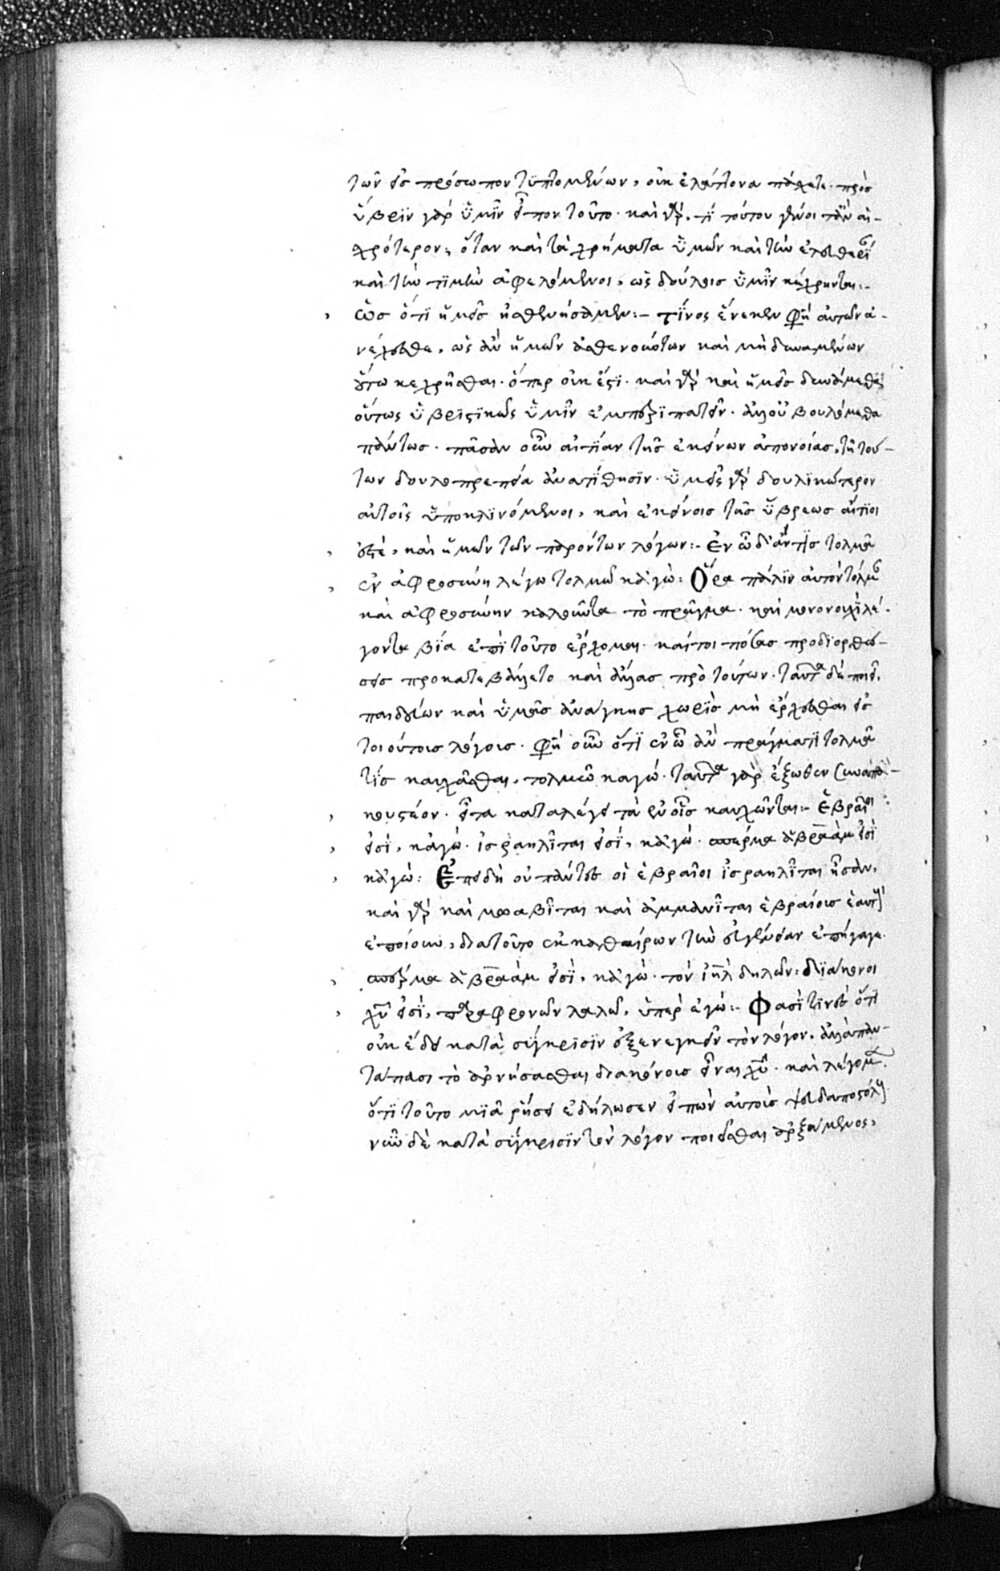 τῶν εἰς πρόσωπον τυπτομένων, οὐκ ἐλάττονα πάσχετε· πρὸς
ὕβριν γὰρ ὑμῖν εἶπον τοῦτο· καὶ γὰρ, τί τούτου γένοιτ' ἂν αἰ-
σχρότερον; ὅταν καὶ τὰ χρήματα ὑμῶν καὶ τὴν ἐλευθερί
καὶ τὴν τιμὴν ἀφελόμενοι, ὡς δούλοις ὑμῖν κέχρηνται:-
ὡς ὅτι ἡμεῖς ἠσθενήσαμεν:- τίνος ἕνεκεν φη αὐτῶν ἀ-
νέχεσθε, ὡς ἂν ἡμῶν ἀσθενούντων καὶ μὴ δυναμένων
οὕτω κεχρῆσθαι· ὅπερ οὐκ ἔστι· καὶ γὰρ καὶ ἡμεῖς δυνάμεθα
οὕτως ὑβριστικῶς ὑμῖν ἐμπεριπατεῖν· ἀλλ' οὐ βουλόμεθα
πάντως· πᾶσαν οὖν αἰτίαν τῆς ἐκείνων ἀπονοίας, τῇ τού-
των δουλοπρεπείᾳ ἀνατίθησιν· ὑμεῖς γὰρ δουλικώτερον
αὐτοῖς ὑποκλινόμενοι, καὶ ἐκείνοις τῆς ὕβρεως αἴτιοι
ἐστέ, καὶ ἡμῶν τῶν παρόντων λόγων:- Ἐν ᾧ δ' ἄν τις τολμᾶ
ἐν ἀφροσύνη λέγω τολμῶ κἀγώ: Ὅρα πάλιν αὐτὸν
καὶ ἀφροσύνην καλοῦντα τὸ πρᾶγμα· καὶ μονονουχὶ λέ-
γοντα βία ἐπὶ τοῦτο ἔρχομαι· καίτοι πόσας προδιορθώ-
σεις προκατεβάλετο καὶ ἄλλας πρὸ τούτων· ταῦτα δὲ ποιεῖ,
παιδεύων καὶ ὑμᾶς ἀνάγκης χωρὶς μὴ ἔρχεσθαι εἰς
τοιούτοις λόγοις· φη οὖν ὅτι ἐν ᾧ ἂν πράγματι τολμᾶ
τίς καυχᾶσθαι, τολμῶ καγώ· ταῦτα γὰρ ἔξωθεν συναπα-
κουστέον· εἶτα καταλέγει τὰ ἐν οἷς καυχῶνται:- Ἑβραῖοι
εἰσί, κἀγώ· ἰσραηλῖται εἰσί, κἀγώ· σπέρμα ἀβραὰμ εἰσὶ
κἀγώ: Ἐπειδὴ οὐ πάντες οἱ ἑβραῖοι ἰσραηλῖται ἦσαν,
καὶ γὰρ καὶ μωαβῖται καὶ ἀμμανῖται ἑβραίοις ἑαυτοὺς
ἐποίουν, διατοῦτο ἐκκαθαίρων τὴν εὐγένειαν ἐπήγαγε
σπέρμα ἀβραάμ εἰσὶ, κἀγώ· τὸν ἰηλ δηλῶν: διάκονοι
χυ εἰσὶ, παραφρονῶν λαλῶ, ὑπὲρ ἐγώ:- Φασὶ τινὲς ὅτι
οὐκ ἔδει κατὰ σύγκρισιν ἐξενεγκεῖν τὸν λόγον, ἀλλὰ παν-
τάπασι τὸ ἀρνήσασθαι διακόνοις εἶναι χυ· καὶ λέγομεν
ὅτι τοῦτο μιᾶ ῥήσει ἐδήλωσεν εἰπὼν αὐτοὺς ψευδαποστόλους
νῦν δὲ κατὰ σύγκρισιν τὸν λόγον ποιεῖσθαι ἀρξάμενος,